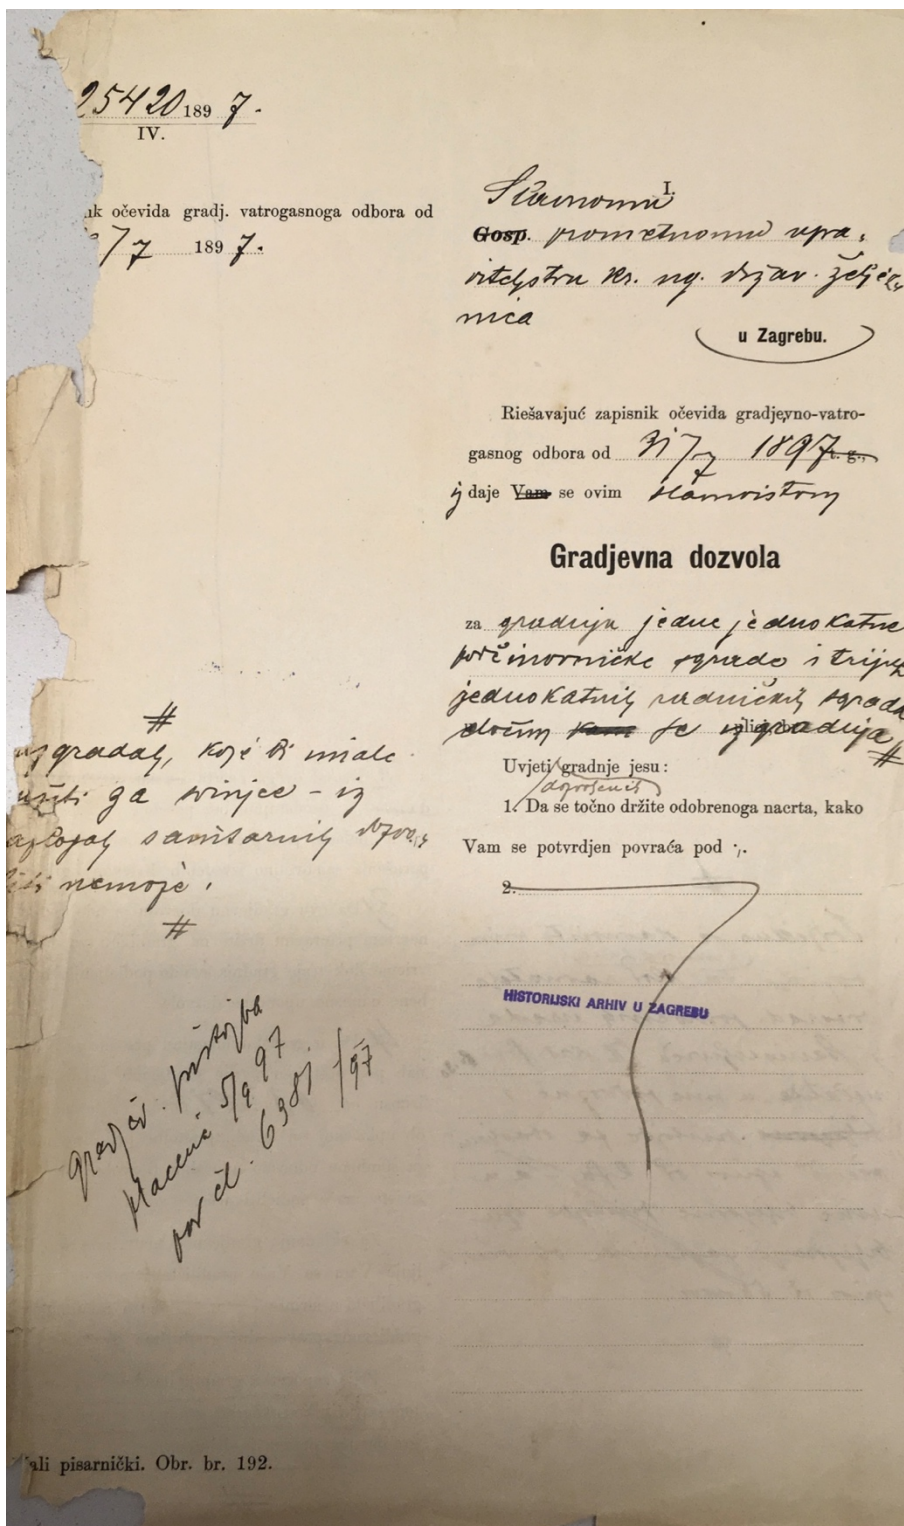 25420 1897.
IV.
očevida gradj. vatrogasnoga odbora od
/7 1897.
I.
Slavnomu
Gosp. prometnomu upra-
viteljstvu kr. ug. držav. željez-
nica
u Zagrebu.
Riešavajuć zapisnik očevida gradjevno-vatro-
gasnog odbora od 31/7 1897 t. g.,
izdaje Vam se ovim
Gradjevna dozvola
za gradnju jedne jednokatne
podčinovničke sgrade i trijuh
jednokatnih radničkih sgrada
dočim se izgradnja #
Uvjeti gradnje jesu:
1. Da se točno držite odobrenoga nacrta, kako
Vam se potvrdjen povraća pod ·/.
2.
#
sgradah, koje bi imale
za svinjce – iz
sanitarnih dozvo-
liti nemože.
#
HISTORIJSKI ARHIV U ZAGREBU
gradjev. pristojba
plaćena 5/9 97
pov čl. 6381/97
pisarnički. Obr. br. 192.